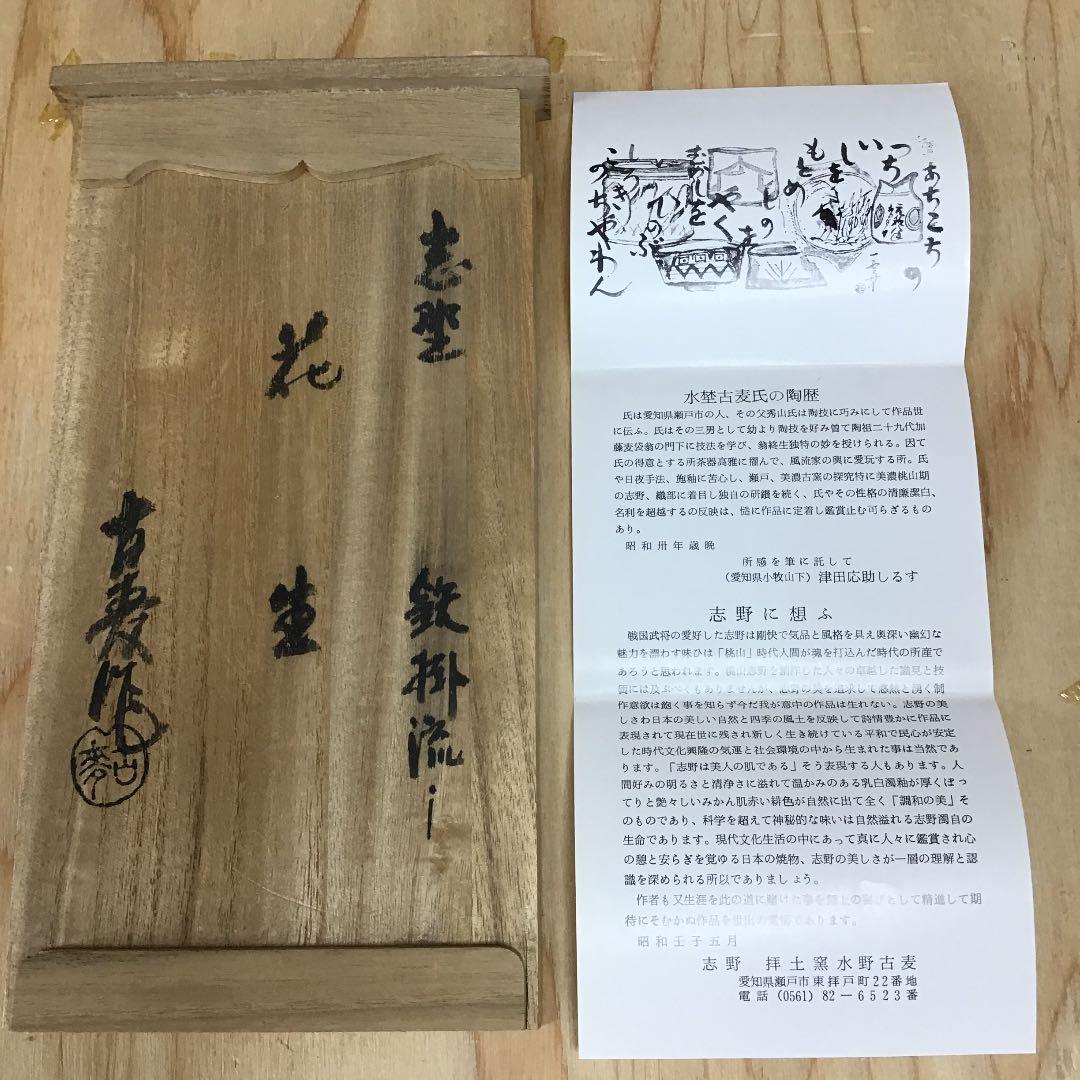 志埜
鉄掛流し
花
生
古麦作
古麦
あちこちの
つちいしをもとめ
しの
やく
水埜古麦氏の陶歴
氏は愛知県瀬戸市の人、その父秀山氏は陶技に巧みにして作品世
に伝ふ。氏はその三男として幼より陶技を好み曽て陶祖二十九代加
藤麦袋翁の門下に技法を学び、翁終生独特の妙を授けられる。因て
氏の得意とする所茶器高雅に擢んで、風流家の興に愛玩する所。氏
や日夜手法、匏釉に苦心し、瀬戸、美濃古窯の探究特に美濃桃山期
の志野、織部に着目し独自の研鑽を続く、氏やその性格の清廉潔白、
名利を超越するの反映は、慥に作品に定着し鑑賞止む可らざるもの
あり。
昭和卅年歳晩
所感を筆に託して
(愛知県小牧山下) 津田応助しるす
志野に想ふ
戦国武将の愛好した志野は剛快で気品と風格を具え奥深い幽幻な
魅力を漂わす味ひは「桃山」時代人間が魂を打込んだ時代の所産で
あろうと思われます。桃山志野を創作した人々の卓越した識見と技
質には及ぶべくもありませんが、志野の美を追求して悠然と湧く制
作意欲は飽く事を知らず今だ我が意中の作品は生れない。志野の美
しさわ日本の美しい自然と四季の風土を反映して詩情豊かに作品に
表現されて現在世に残され新しく生き続けている平和で民心が安定
した時代文化興隆の気運と社会環境の中から生まれた事は当然であ
ります。「志野は美人の肌である」そう表現する人もあります。人
間好みの明るさと清浄さに溢れて温かみのある乳白濁釉が厚くぽっ
てりと艶々しいみかん肌赤い緋色が自然に出て全く「調和の美」そ
のものであり、科学を超えて神秘的な味いは自然溢れる志野濁自の
生命であります。現代文化生活の中にあって真に人々に鑑賞され心
の憩と安らぎを覚ゆる日本の焼物、志野の美しさが一層の理解と認
識を深められる所以でありましょう。
作者も又生涯を此の道に賭けた事を無上の喜びとして精進して期
待にそむかぬ作品を世出の愛情であります。
昭和壬子五月
志野 拝土窯水野古麦
愛知県瀬戸市東拝戸町22番地
電話 (0561) 82-6523番